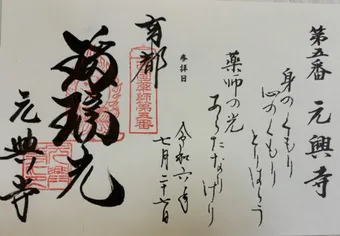 第五番 元興寺
身のくもり
心のくもり
とりはらう
薬師の光
あらたなり
けり
参拝日
令和六年
七月二十七日
南都
西国薬師第五番
瑠璃光
元興寺